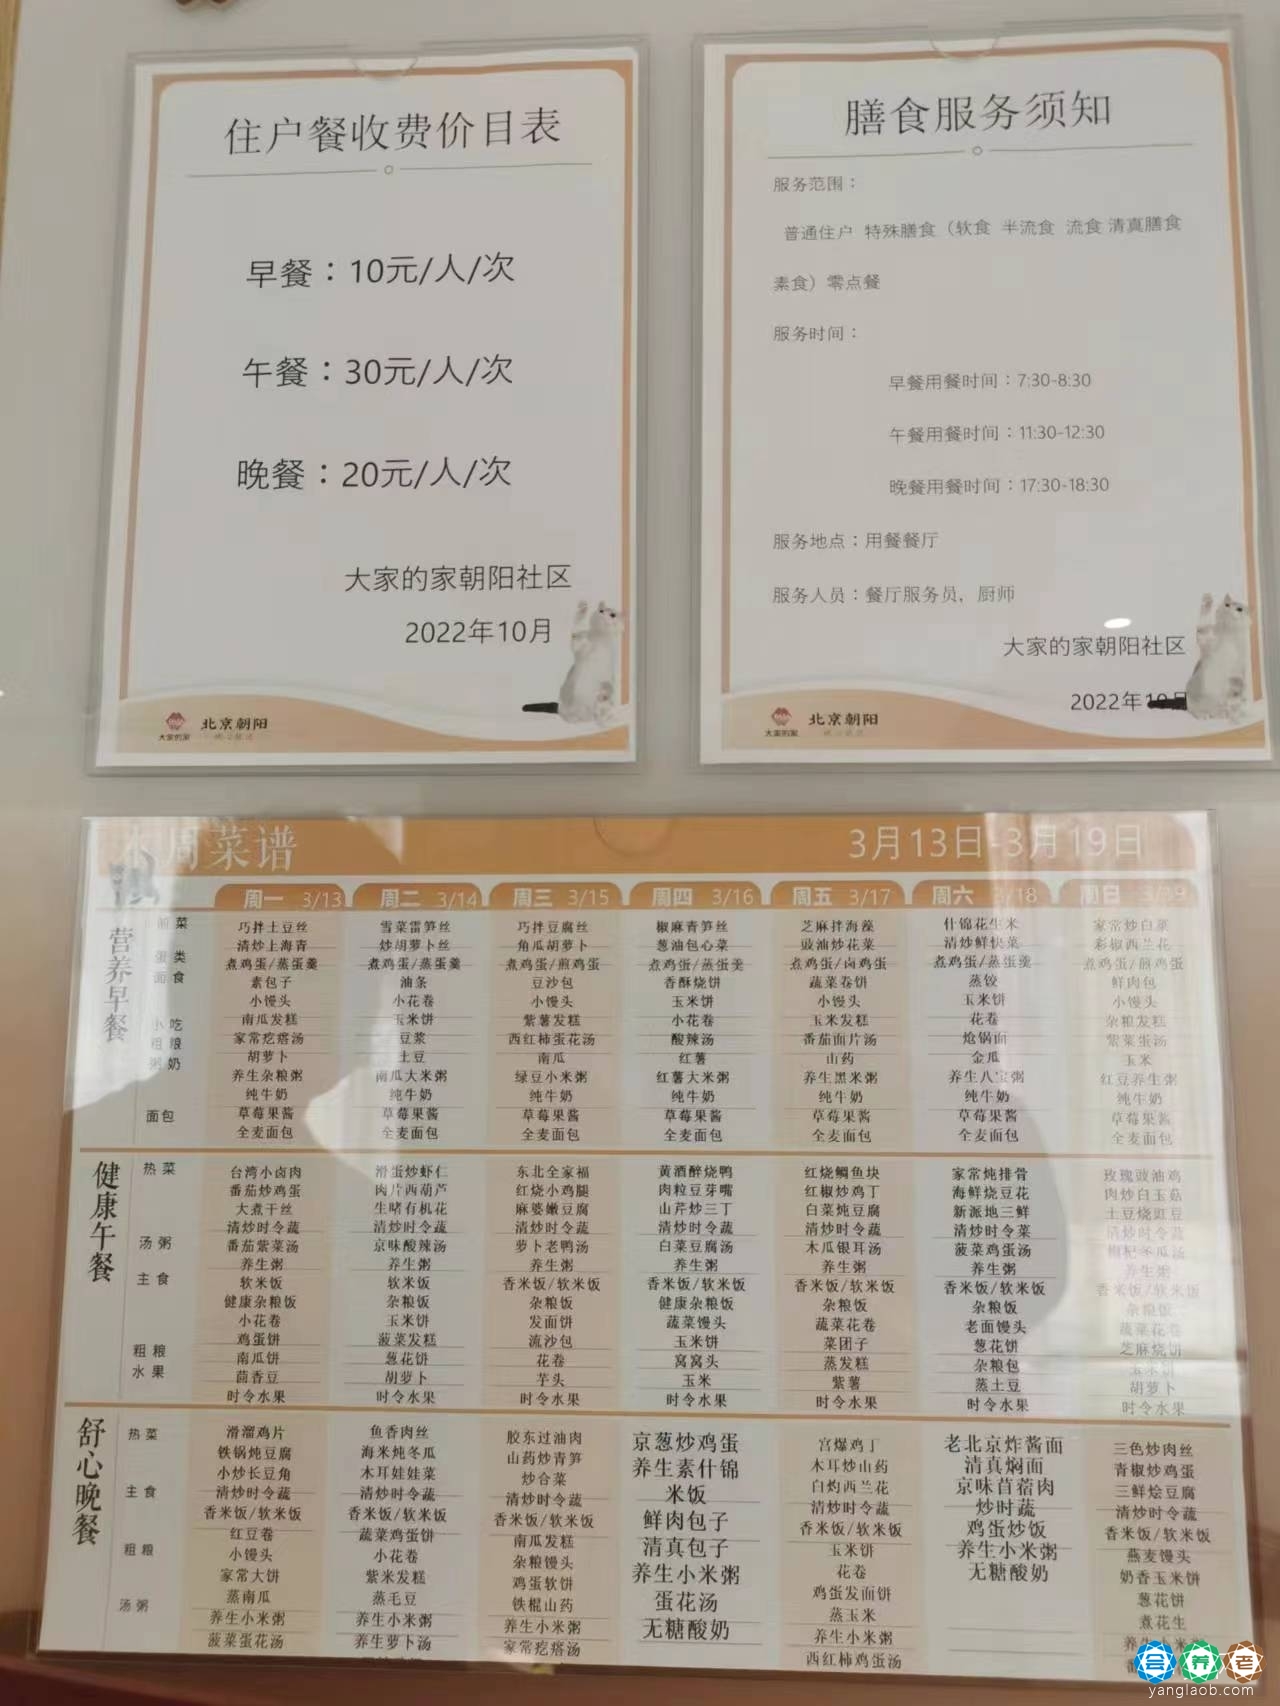 住户餐收费价目表
早餐：10元/人/次
午餐：30元/人/次
晚餐：20元/人/次
大家的家朝阳社区
2022年10月
大家的家
北京朝阳
膳食服务须知
服务范围：
普通住户 特殊膳食（软食 半流食 流食 清真膳食
素食）零点餐
服务时间：
早餐用餐时间：7:30-8:30
午餐用餐时间：11:30-12:30
晚餐用餐时间：17:30-18:30
服务地点：用餐餐厅
服务人员：餐厅服务员，厨师
大家的家朝阳社区
2022年10月
大家的家
北京朝阳
本周菜谱 3月13日-3月19日
周一 3/13 周二 3/14 周三 3/15 周四 3/16 周五 3/17 周六 3/18 周日 3/19
营养早餐
前菜 巧拌土豆丝 雪菜雷笋丝 巧拌豆腐丝 椒麻青笋丝 芝麻拌海藻 什锦花生米 家常炒白菜
清炒上海青 炒胡萝卜丝 角瓜胡萝卜 葱油包心菜 豉油炒花菜 清炒鲜快菜 彩椒西兰花
蛋类 煮鸡蛋/蒸蛋羹 煮鸡蛋/蒸蛋羹 煮鸡蛋/煎鸡蛋 煮鸡蛋/蒸蛋羹 煮鸡蛋/卤鸡蛋 煮鸡蛋/蒸蛋羹 煮鸡蛋/煎鸡蛋
面食 素包子 油条 豆沙包 香酥烧饼 蔬菜卷饼 蒸饺 鲜肉包
小馒头 小花卷 小馒头 玉米饼 小馒头 玉米饼 小馒头
小吃 南瓜发糕 玉米饼 紫薯发糕 小花卷 玉米发糕 花卷 杂粮发糕
粗粮 家常疙瘩汤 豆浆 西红柿蛋花汤 酸辣汤 番茄面片汤 炝锅面 紫菜蛋汤
粥奶 胡萝卜 土豆 南瓜 红薯 山药 金瓜 玉米
养生杂粮粥 南瓜大米粥 绿豆小米粥 红薯大米粥 养生黑米粥 养生八宝粥 红豆养生粥
纯牛奶 纯牛奶 纯牛奶 纯牛奶 纯牛奶 纯牛奶 纯牛奶
面包 草莓果酱 草莓果酱 草莓果酱 草莓果酱 草莓果酱 草莓果酱 草莓果酱
全麦面包 全麦面包 全麦面包 全麦面包 全麦面包 全麦面包 全麦面包
健康午餐
热菜 台湾小卤肉 滑蛋炒虾仁 东北全家福 黄酒醉烧鸭 红烧鲷鱼块 家常炖排骨 玫瑰豉油鸡
番茄炒鸡蛋 肉片西葫芦 红烧小鸡腿 肉粒豆芽嘴 红椒炒鸡丁 海鲜烧豆花 肉炒白玉菇
大煮干丝 生啫有机花 麻婆嫩豆腐 山芹炒三丁 白菜炖豆腐 新派地三鲜 土豆烧豇豆
清炒时令蔬 清炒时令蔬 清炒时令蔬 清炒时令蔬 清炒时令蔬 清炒时令菜 清炒时令蔬
汤粥 番茄紫菜汤 京味酸辣汤 萝卜老鸭汤 白菜豆腐汤 木瓜银耳汤 菠菜鸡蛋汤 枸杞冬瓜汤
养生粥 养生粥 养生粥 养生粥 养生粥 养生粥 养生粥
主食 软米饭 软米饭 香米饭/软米饭 香米饭/软米饭 香米饭/软米饭 香米饭/软米饭 香米饭/软米饭
健康杂粮饭 杂粮饭 杂粮饭 健康杂粮饭 杂粮饭 杂粮饭 杂粮饭
小花卷 玉米饼 发面饼 蔬菜馒头 蔬菜花卷 老面馒头 蔬菜花卷
鸡蛋饼 菠菜发糕 流沙包 玉米饼 菜团子 葱花饼 芝麻烧饼
粗粮 南瓜饼 葱花饼 花卷 窝窝头 蒸发糕 杂粮包 玉米饼
水果 茴香豆 胡萝卜 芋头 玉米 紫薯 蒸土豆 胡萝卜
时令水果 时令水果 时令水果 时令水果 时令水果 时令水果 时令水果
舒心晚餐
热菜 滑溜鸡片 鱼香肉丝 胶东过油肉 京葱炒鸡蛋 宫爆鸡丁 老北京炸酱面 三色炒肉丝
铁锅炖豆腐 海米炖冬瓜 山药炒青笋 养生素什锦 木耳炒山药 清真焖面 青椒炒鸡蛋
小炒长豆角 木耳娃娃菜 炒合菜 米饭 白灼西兰花 京味苜蓿肉 三鲜烩豆腐
主食 清炒时令蔬 清炒时令蔬 清炒时令蔬 鲜肉包子 清炒时令蔬 炒时蔬 清炒时令蔬
香米饭/软米饭 香米饭/软米饭 香米饭/软米饭 清真包子 香米饭/软米饭 鸡蛋炒饭 香米饭/软米饭
红豆卷 蔬菜鸡蛋饼 南瓜发糕 养生小米粥 玉米饼 养生小米粥 燕麦馒头
粗粮 小馒头 小花卷 杂粮馒头 蛋花汤 花卷 无糖酸奶 奶香玉米饼
家常大饼 紫米发糕 鸡蛋软饼 无糖酸奶 鸡蛋发面饼 葱花饼
汤粥 蒸南瓜 蒸毛豆 铁棍山药 蒸玉米 煮花生
养生小米粥 养生小米粥 养生小米粥 养生小米粥 养生小米粥
菠菜蛋花汤 养生萝卜汤 家常疙瘩汤 西红柿鸡蛋汤
会养老
yanglaob.com